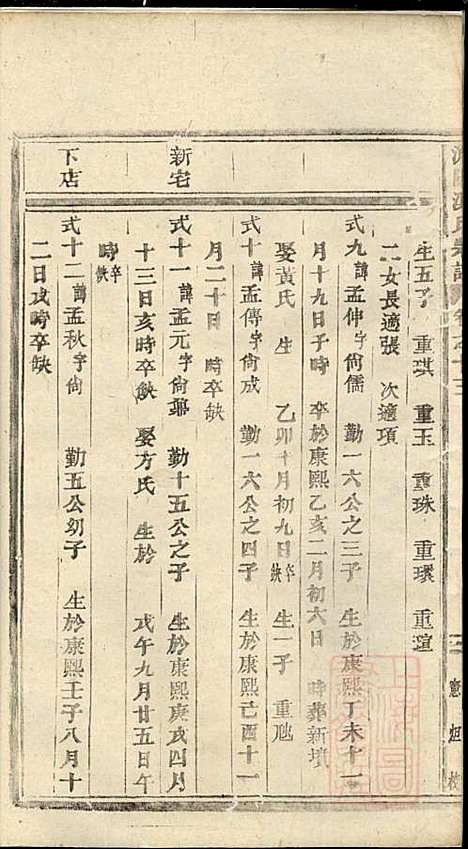 生五子 重琪 重玉 重珠 重環 重瑄
二女長適張 次適項
式九諱孟伸字尙儒 勤一六公之三子 生於康熙丁未十一
月十九日子時 卒於康熙乙亥二月初六日 時葬新墳
娶黃氏 生 乙卯十月初九日卒缺 生一子 重虺
式十諱孟傳字尙成 勤一六公之四子 生於康熙己酉十一
月二十日 時卒缺
新宅
式十一諱孟元字尙 勤十五公之子 生於康熙庚戌四月
十三日亥時卒缺 娶方氏 生於 戊午九月廿五日午
時卒缺
下店
式十二諱孟秋字尙 勤五公幼子 生於康熙壬子八月十
二日戌時卒缺